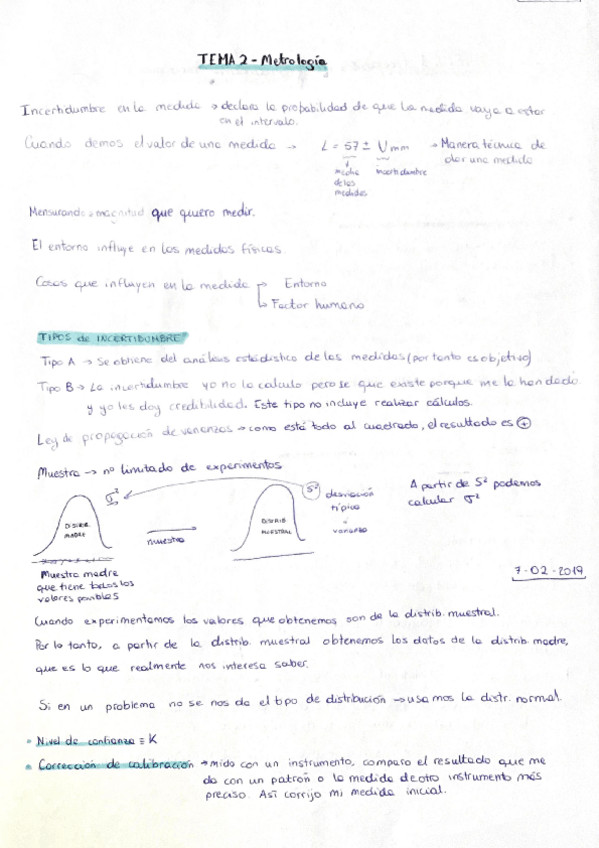 TEMA 2 - Metrología
Incertidumbre en la medida → declara la probabilidad de que la medida vaya a estar
en el intervalo.
Cuando demos el valor de una medida → L = 57 ± U mm → Manera técnica de
dar una medida
media de las medidas
incertidumbre
Mensurando → magnitud que quiero medir.
El entorno influye en las medidas físicas.
Cosas que influyen en la medida → Entorno
↳ Factor humano
TIPOS de INCERTIDUMBRE
Tipo A → Se obtiene del análisis estadístico de las medidas (por tanto es objetivo)
Tipo B → La incertidumbre yo no la calculo pero se que existe porque me la han dado
y yo les doy credibilidad. Este tipo no incluye realizar cálculos.
Ley de propagación de varianzas → como está todo al cuadrado, el resultado es ⊕
Muestra → nº limitado de experimentos
DISTRIB MADRE
σ²
muestra
DISTRIB MUESTRAL
S²
desviación típica
varianza
A partir de S² podemos
calcular σ²
Muestra madre
que tiene todos los
valores posibles
7-02-2019
Cuando experimentamos los valores que obtenemos son de la distrib. muestral.
Por lo tanto, a partir de la distrib. muestral obtenemos los datos de la distrib. madre,
que es lo que realmente nos interesa saber.
Si en un problema no se nos da el tipo de distribución → usamos la distr. normal.
Nivel de confianza ≡ K
Corrección de calibración → mido con un instrumento, comparo el resultado que me
da con un patrón o la medida de otro instrumento más
preciso. Así corrijo mi medida inicial.